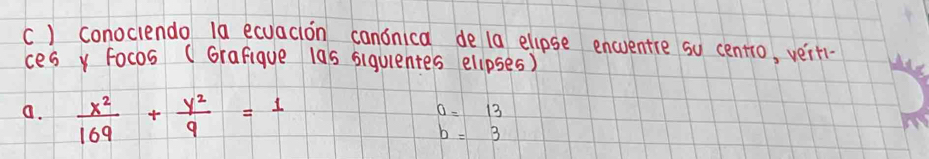 c) conociendo la ecuación canónica de la elipse encuentre su centro, vérti-
ces y Focos (Grafique las siguientes elipses)
a. x²/169 + y²/9 = 1
a = 13
b = 3